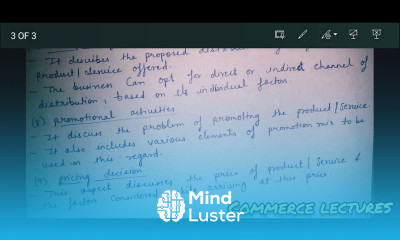 3 OF 3
It describes the proposed
product/service offered.
- The business can opt for direct or indirect channel of
distribution, based on its individual factors.
(8) Promotional activities
- It discuss the problem of promoting the product/service
- It also includes various elements of promotion mix to be
used in this regard.
(9) Pricing decision
This aspect discusses the price of product/service &
the factors considered while arriving at this price.
Mind
Luster
COMMERCE LECTURES